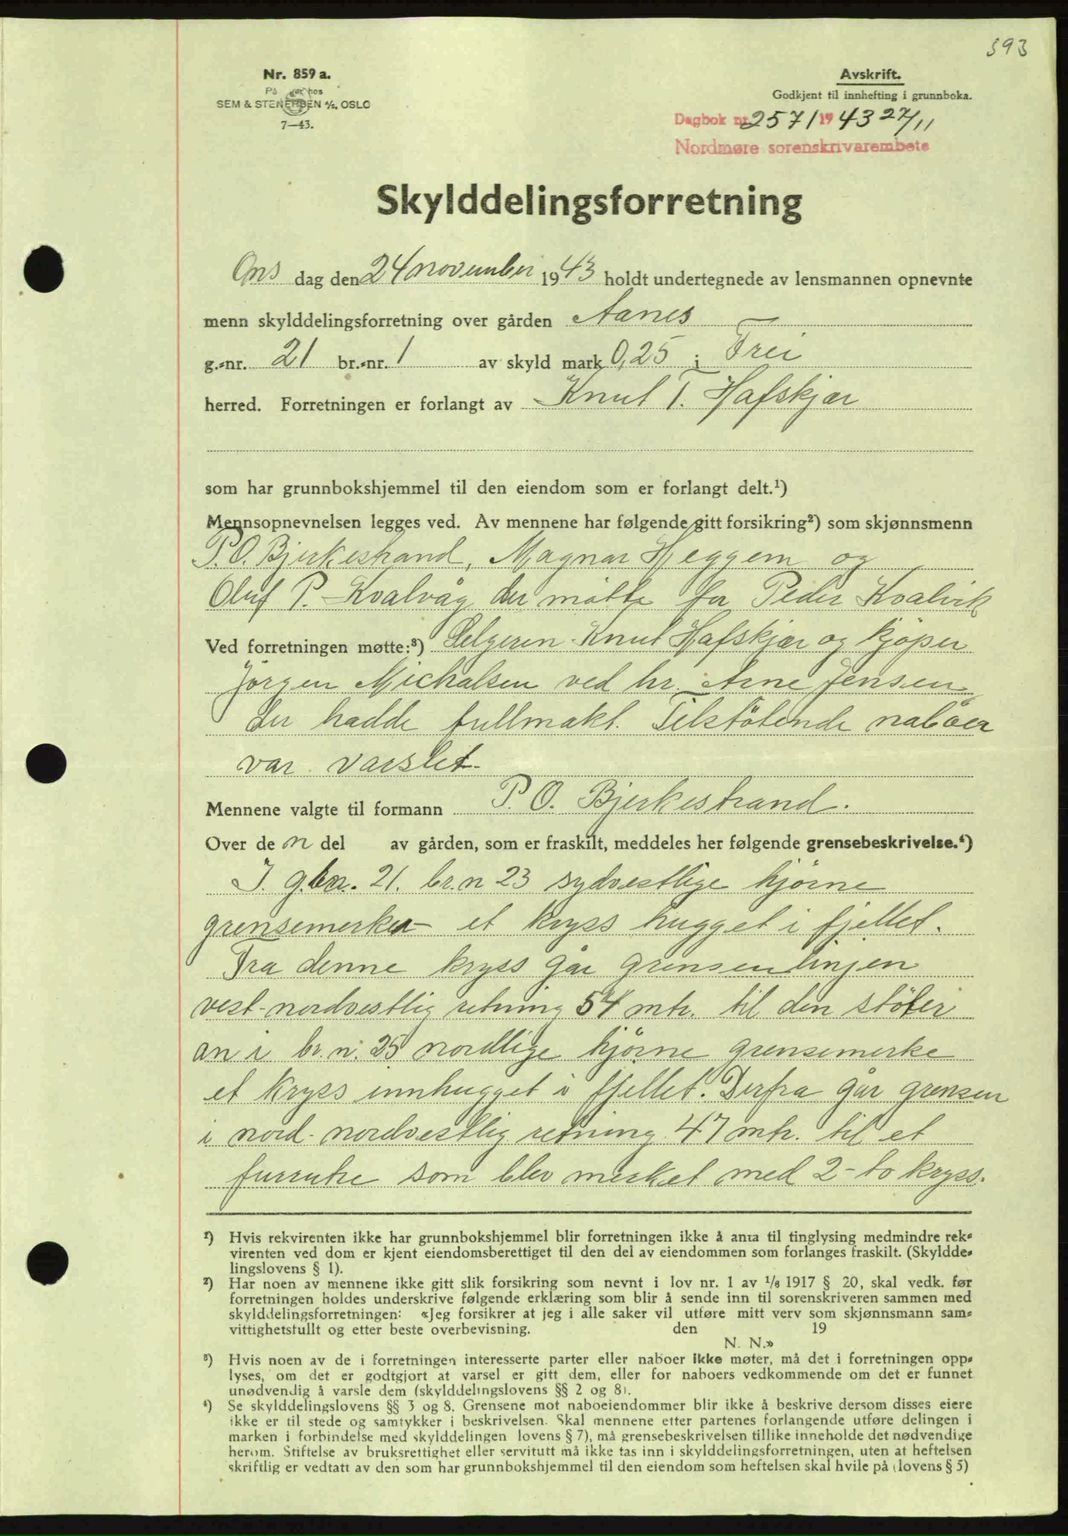 593
Nr. 859 a.
På lager hos
SEM & STENERSEN A/S, OSLO
7—43.
Avskrift.
Godkjent til innhefting i grunnboka.
Dagbok nr. 2571 1943 27/11
Nordmøre sorenskrivarembete
Skylddelingsforretning
Ons dag den 24 november 1943 holdt undertegnede av lensmannen opnevnte
menn skylddelingsforretning over gården Aanes
g.-nr. 21 br.-nr. 1 av skyld mark 0,25 i Frei
herred. Forretningen er forlangt av Knut T. Hafskjær
som har grunnbokshjemmel til den eiendom som er forlangt delt.¹)
Mennsopnevnelsen legges ved. Av mennene har følgende gitt forsikring²) som skjønnsmenn
P. O. Bjerkestrand, Magnar Heggem og
Oluf P. Kvalvåg der møtte for Peder Kvalvik
Ved forretningen møtte:³) Selgeren Knut Hafskjær og kjöper
Jörgen Michalsen ved hr. Arne Jensen
der hadde fullmakt. Tilstötende naboer
var varslet
Mennene valgte til formann P. O. Bjerkestrand.
Over de n del av gården, som er fraskilt, meddeles her følgende grensebeskrivelse.⁴)
I g.bn. 21. br.n 23 sydvestlige hjörne
grensemerke et kryss hugget i fjellet.
Fra denne kryss går grensenlinjen
vest-nordvestlig retning 54 mtr. til den stöter
an i br. n. 25 nordlige hjörne grensemerke
et kryss innhugget i fjellet. Derfra går grensen
i nord-nordvestlig retning 47 mtr. til et
furrutre som blev merket med 2-to kryss.
¹) Hvis rekvirenten ikke har grunnbokshjemmel blir forretningen ikke å anta til tinglysing medmindre rek-
virenten ved dom er kjent eiendomsberettiget til den del av eiendommen som forlanges fraskilt. (Skyldde-
lingslovens § 1).
²) Har noen av mennene ikke gitt slik forsikring som nevnt i lov nr. 1 av 1/6 1917 § 20, skal vedk. før
forretningen holdes underskrive følgende erklæring som blir å sende inn til sorenskriveren sammen med
skylddelingsforretningen: «Jeg forsikrer at jeg i alle saker vil utføre mitt verv som skjønnsmann sam-
vittighetsfullt og etter beste overbevisning. den 19
N. N.»
³) Hvis noen av de i forretningen interesserte parter eller naboer ikke møter, må det i forretningen opp-
lyses, om det er godtgjort at varsel er gitt dem, eller for naboers vedkommende om det er funnet
unødvendig å varsle dem (skylddelingslovens §§ 2 og 8).
⁴) Se skylddelingslovens §§ 3 og 8. Grensene mot naboeiendommer blir ikke å beskrive dersom disses eiere
ikke er til stede og samtykker i beskrivelsen. Skal mennene etter partenes forlangende utføre delingen i
marken i forbindelse med skylddelingen lovens § 7), må grensebeskrivelsen tillike inneholde det nødvendige
herom. Stiftelse av bruksrettighet eller servitutt må ikke tas inn i skylddelingsforretningen, uten at heftelsen
skriftlig er vedtatt av den som har grunnbokshjemmel til den eiendom som heftelsen skal hvile på (lovens § 5)